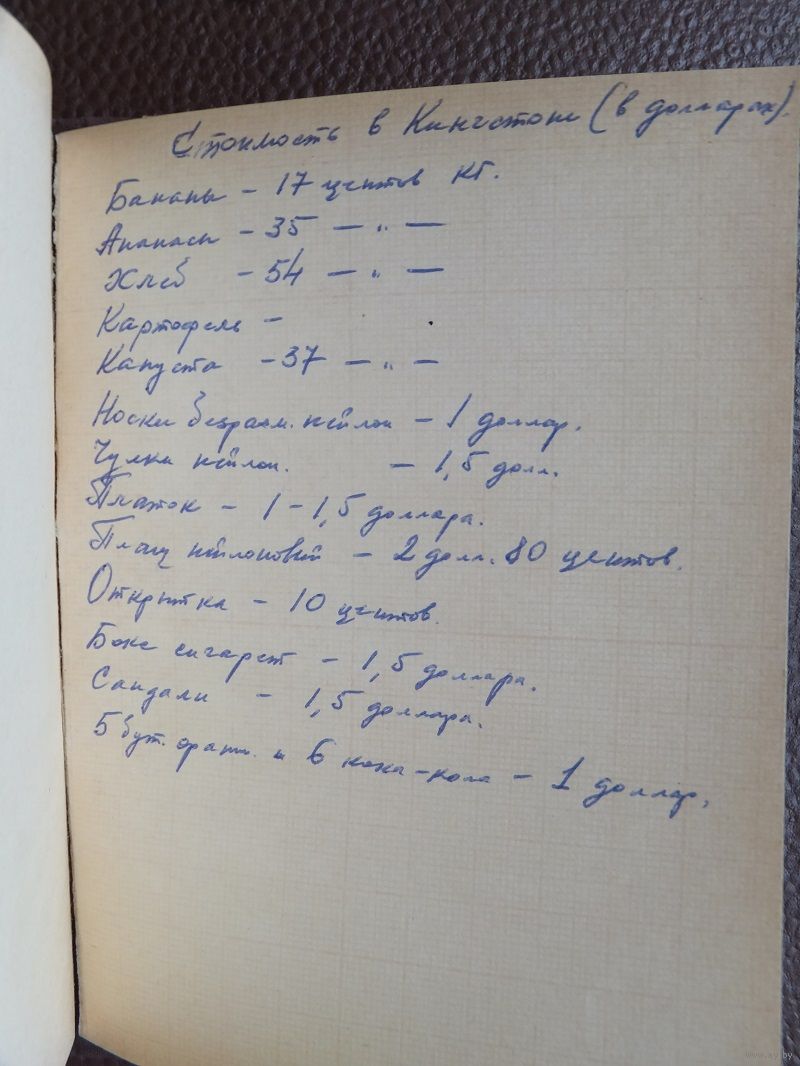 Стоимость в Кингстоне (в долларах).
Бананы - 17 центов кг.
Ананасы - 35 — " —
Хлеб - 54 — " —
Картофель -
Капуста - 37 — " —
Носки безразм. нейлон - 1 доллар.
Чулки нейлон. - 1,5 долл.
Платок - 1 - 1,5 доллара.
Плащ нейлоновый - 2 долл. 80 центов.
Открытка - 10 центов.
Бокс сигарет - 1,5 доллара.
Сандали - 1,5 доллара.
5 бут. оранж. и 6 кока-кола - 1 доллар,